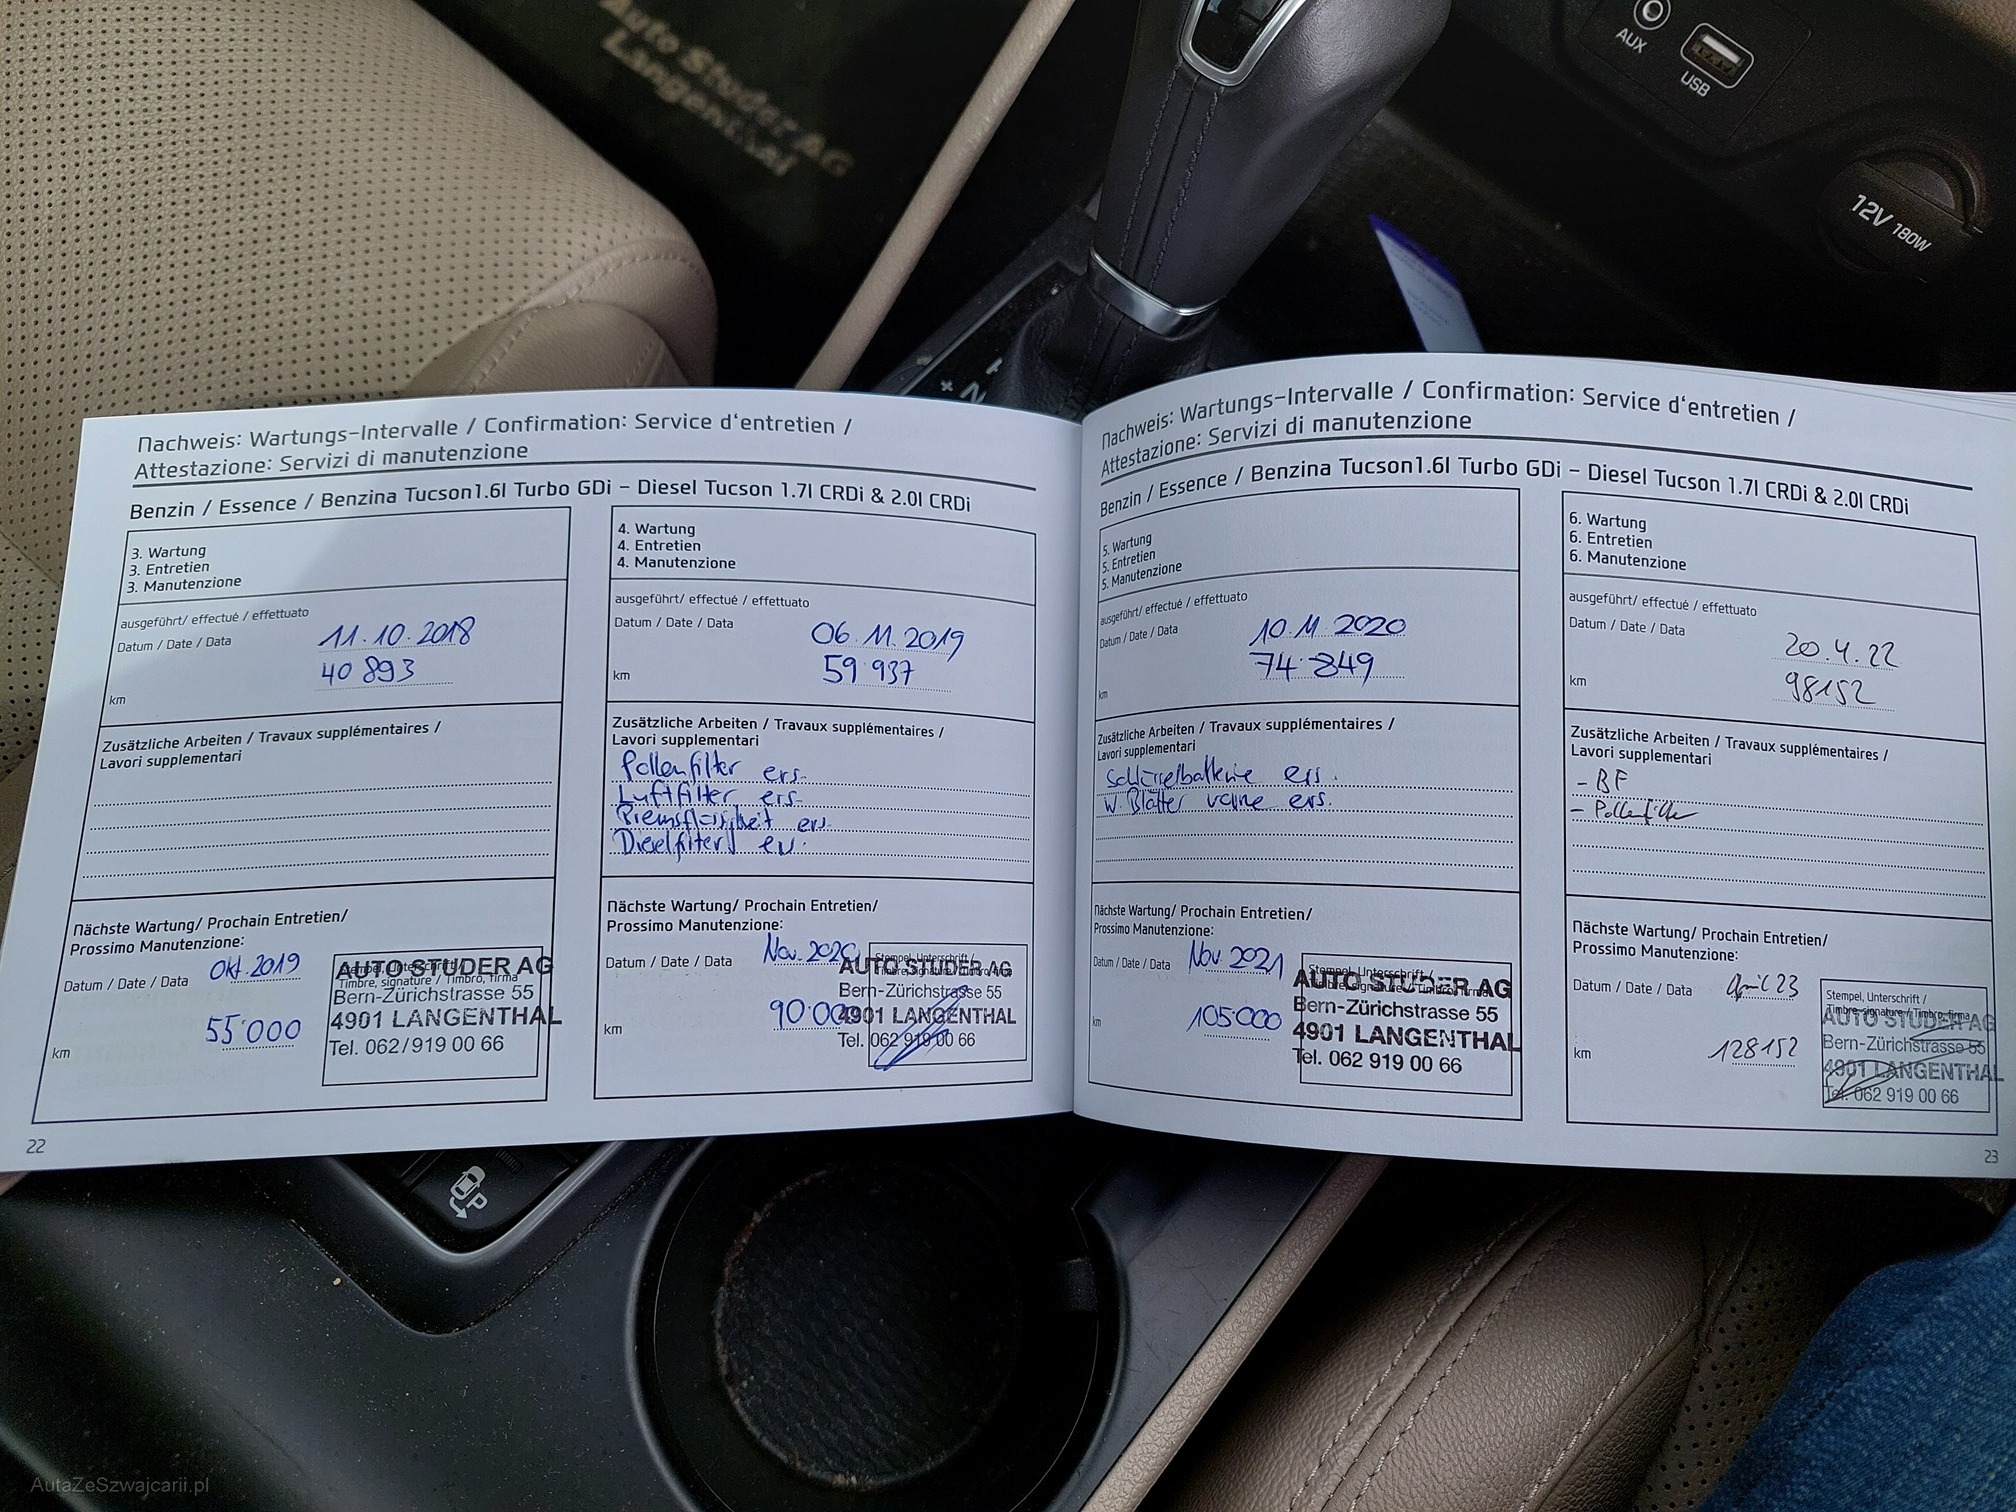 Auto Studer AG
Langenthal
AUX
USB
12V 180W
N
Nachweis: Wartungs-Intervalle / Confirmation: Service d'entretien /
Attestazione: Servizi di manutenzione
Benzin / Essence / Benzina Tucson1.6l Turbo GDi – Diesel Tucson 1.7l CRDi & 2.0l CRDi
3. Wartung
3. Entretien
3. Manutenzione
ausgeführt/ effectué / effettuato
Datum / Date / Data 11.10.2018
km 40 893
Zusätzliche Arbeiten / Travaux supplémentaires /
Lavori supplementari
Nächste Wartung/ Prochain Entretien/
Prossimo Manutenzione:
Datum / Date / Data Okt. 2019
km 55'000
Stempel, Unterschrift /
Timbre, signature / Timbro, firma
AUTO STUDER AG
Bern-Zürichstrasse 55
4901 LANGENTHAL
Tel. 062/919 00 66
4. Wartung
4. Entretien
4. Manutenzione
ausgeführt/ effectué / effettuato
Datum / Date / Data 06.11.2019
km 59'937
Zusätzliche Arbeiten / Travaux supplémentaires /
Lavori supplementari
Pollenfilter ers.
Luftfilter ers.
Bremsflüssigkeit ers.
Dieselfilter
Nächste Wartung/ Prochain Entretien/
Prossimo Manutenzione:
Datum / Date / Data Nov. 2020
km 90'000
Stempel, Unterschrift /
Timbre, signature / Timbro, firma
AUTO STUDER AG
Bern-Zürichstrasse 55
4901 LANGENTHAL
Tel. 062 919 00 66
22
Nachweis: Wartungs-Intervalle / Confirmation: Service d'entretien /
Attestazione: Servizi di manutenzione
Benzin / Essence / Benzina Tucson1.6l Turbo GDi – Diesel Tucson 1.7l CRDi & 2.0l CRDi
5. Wartung
5. Entretien
5. Manutenzione
ausgeführt/ effectué / effettuato
Datum / Date / Data 10.11.2020
km 74'849
Zusätzliche Arbeiten / Travaux supplémentaires /
Lavori supplementari
Schlüsselbatterie ers.
W. Blätter vorne ers.
Nächste Wartung/ Prochain Entretien/
Prossimo Manutenzione:
Datum / Date / Data Nov. 2021
km 105'000
Stempel, Unterschrift /
Timbre, signature / Timbro, firma
AUTO STUDER AG
Bern-Zürichstrasse 55
4901 LANGENTHAL
Tel. 062 919 00 66
6. Wartung
6. Entretien
6. Manutenzione
ausgeführt/ effectué / effettuato
Datum / Date / Data 20.4.22
km 98152
Zusätzliche Arbeiten / Travaux supplémentaires /
Lavori supplementari
- BF
- Pollenfilter
Nächste Wartung/ Prochain Entretien/
Prossimo Manutenzione:
Datum / Date / Data April 23
km 128152
Stempel, Unterschrift /
Timbre, signature / Timbro, firma
AUTO STUDER AG
Bern-Zürichstrasse 55
4901 LANGENTHAL
Tel. 062 919 00 66
23
P
AutaZeSzwajcarii.pl